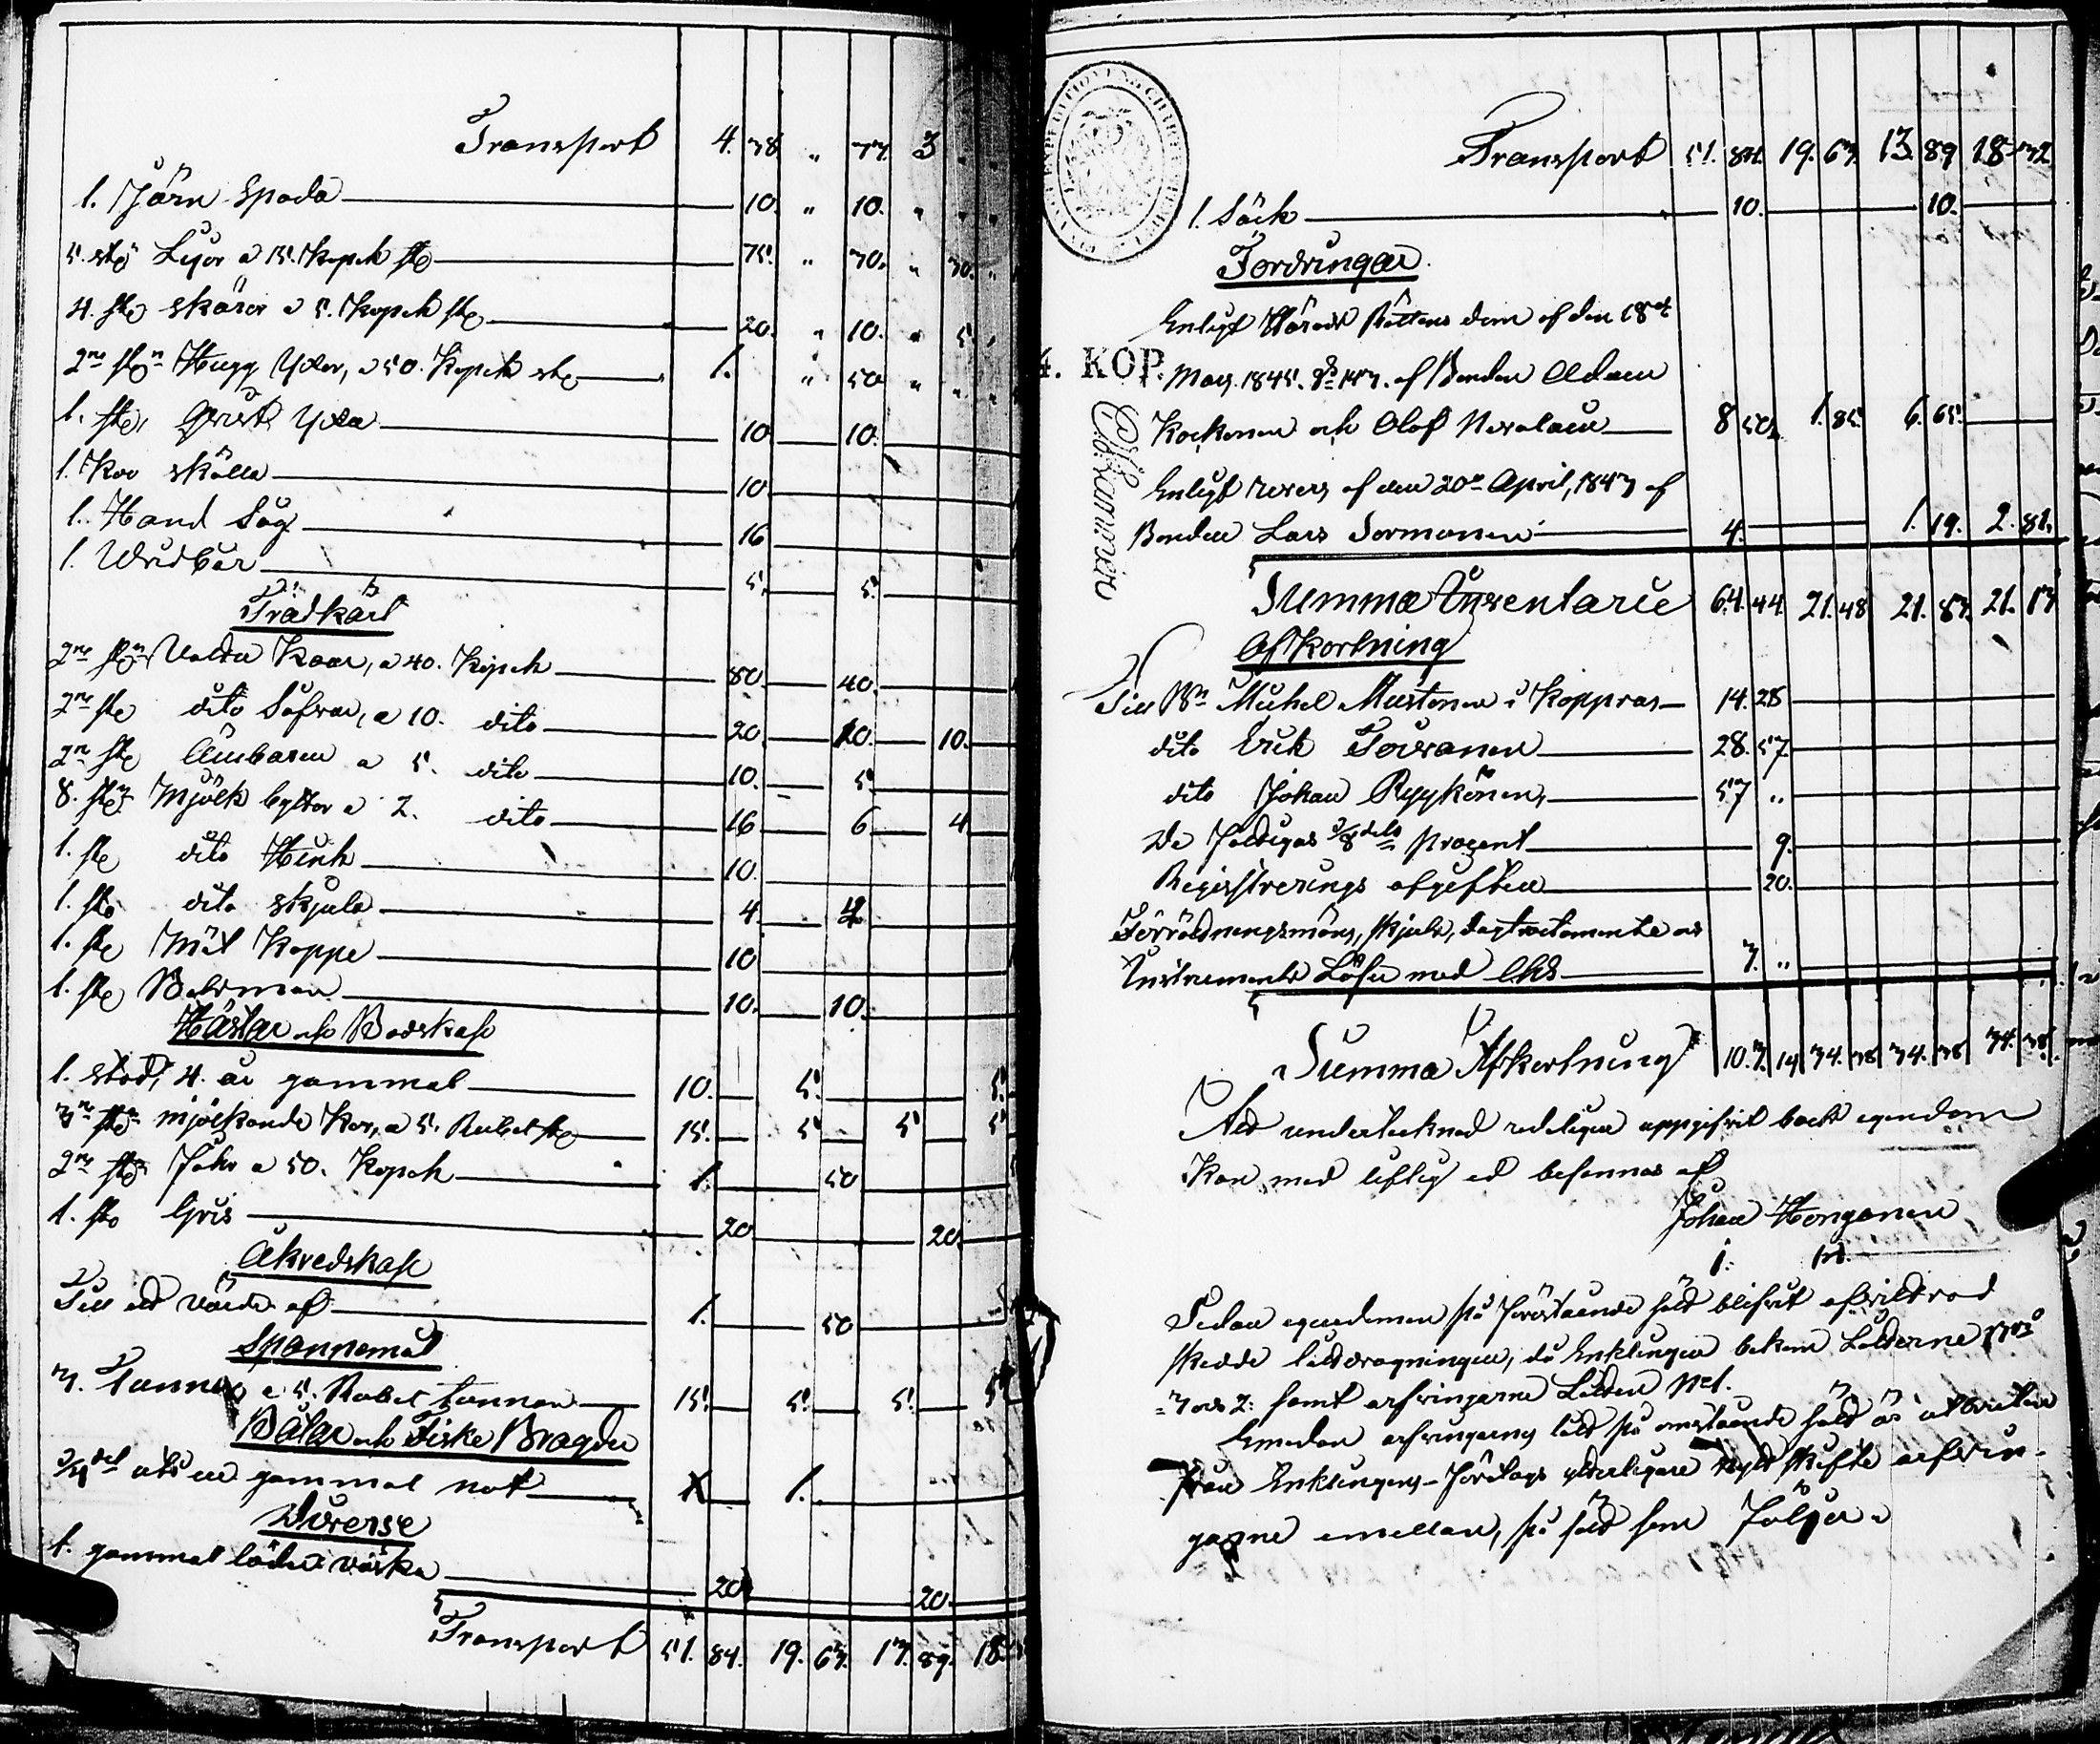 Transport 4. 38 " 77. 3 " "
1. Järn Spada 10. " 10. " " "
5. stÿ Lijor a 15. Kopek stÿ 75. " 30. " 30. "
4. stÿ skäror a 5. Kopek stÿ 20. " 10. " 5 "
2ne stÿn Hugg Yxor, a 50. Kopek stÿ 1. " 50 " " "
1. stÿ, Yxa 10 10.
1. Koo skälla 10
1. Hand Såg 16
1. Wridbår 5. 5.
Trädkärl
2ne stÿn Kaar, a 40. Kopek 80 40.
2ne stÿ dito Såfvar, a 10. dito 20. 10. 10.
2ne stÿ Ämbaren a 5. dito 10. 5.
8. stÿn Mjölk byttor a 2. dito 16 6 4
1. stÿ dito Hink 10.
1. stÿ dito skjula 4. 4
1. stÿ Mål Kappe 10
1. stÿ 10. 10.
Hästar och Bodskap
1. stod, 4. år gammal 10. 5. 5.
3ne stÿn mjölkande Kor, a 5. Rubel stÿ 15. 5 5 5
2ne stÿ Fåhr a 50. Kopek 1. 50
1. stÿ Gris 20 20.
Åkredskap
Till ett värde af 1. 50
Spannemål
3. Tunnor a 5. Rubel tunnan 15. 5. 5. 5
Båtar och Fiske Bragder
gammal not 1. 1.
Diverse
1. gammal läder väska 20 20.
Transport 51. 84. 19. 63. 13. 89. 18.
Transport 51. 84. 19. 63. 13. 89 18. 32
1. Säck 10. 10.
Fordringar.
Enligt Härads Rättens dom af den 18de
4. KOP. May. 1845. § 147. af Bonden Adam
Kockonen och Olof 8 50 1. 85. 6. 65.
Enligt revers af den 20de April, 1843 af
Bonden Lars Sormonen 4. 1. 19. 2. 81.
Summa Inventarie 64. 44 21. 48 21. 83. 21. 13
Afkortning
Till Bn Michel Mustonen i Koppras 14. 28
dito Erik Toivanen 28. 57
dito Johan Ryykönen, 57 "
De Fattigas 1/8dels procent 9.
Registrerings afgiften 20.
Förrädningsmäns, skjuts, dagtractamente och
Instruments Lösen med Chs 7. "
Summa Afkortning 107. 14 34. 38 34. 38 34. 38.
Att undertecknad redeligen uppgifvit boets egendom
Kan med liflig ed befannas af
Johan Hongonen
Sedan egendomen på förestående sätt blifvit afvittrad
skedde lottdragningen, då Enklingen bekom Lotterne N:os
3 och 2: samt arfvingarne Lotten N:o1.
Emedan arfvingarnes lott på omstående sätt är utbruten
från Enklingens förelags ytterligare skifte arfvin-
garne emellan, på sätt som Följer: